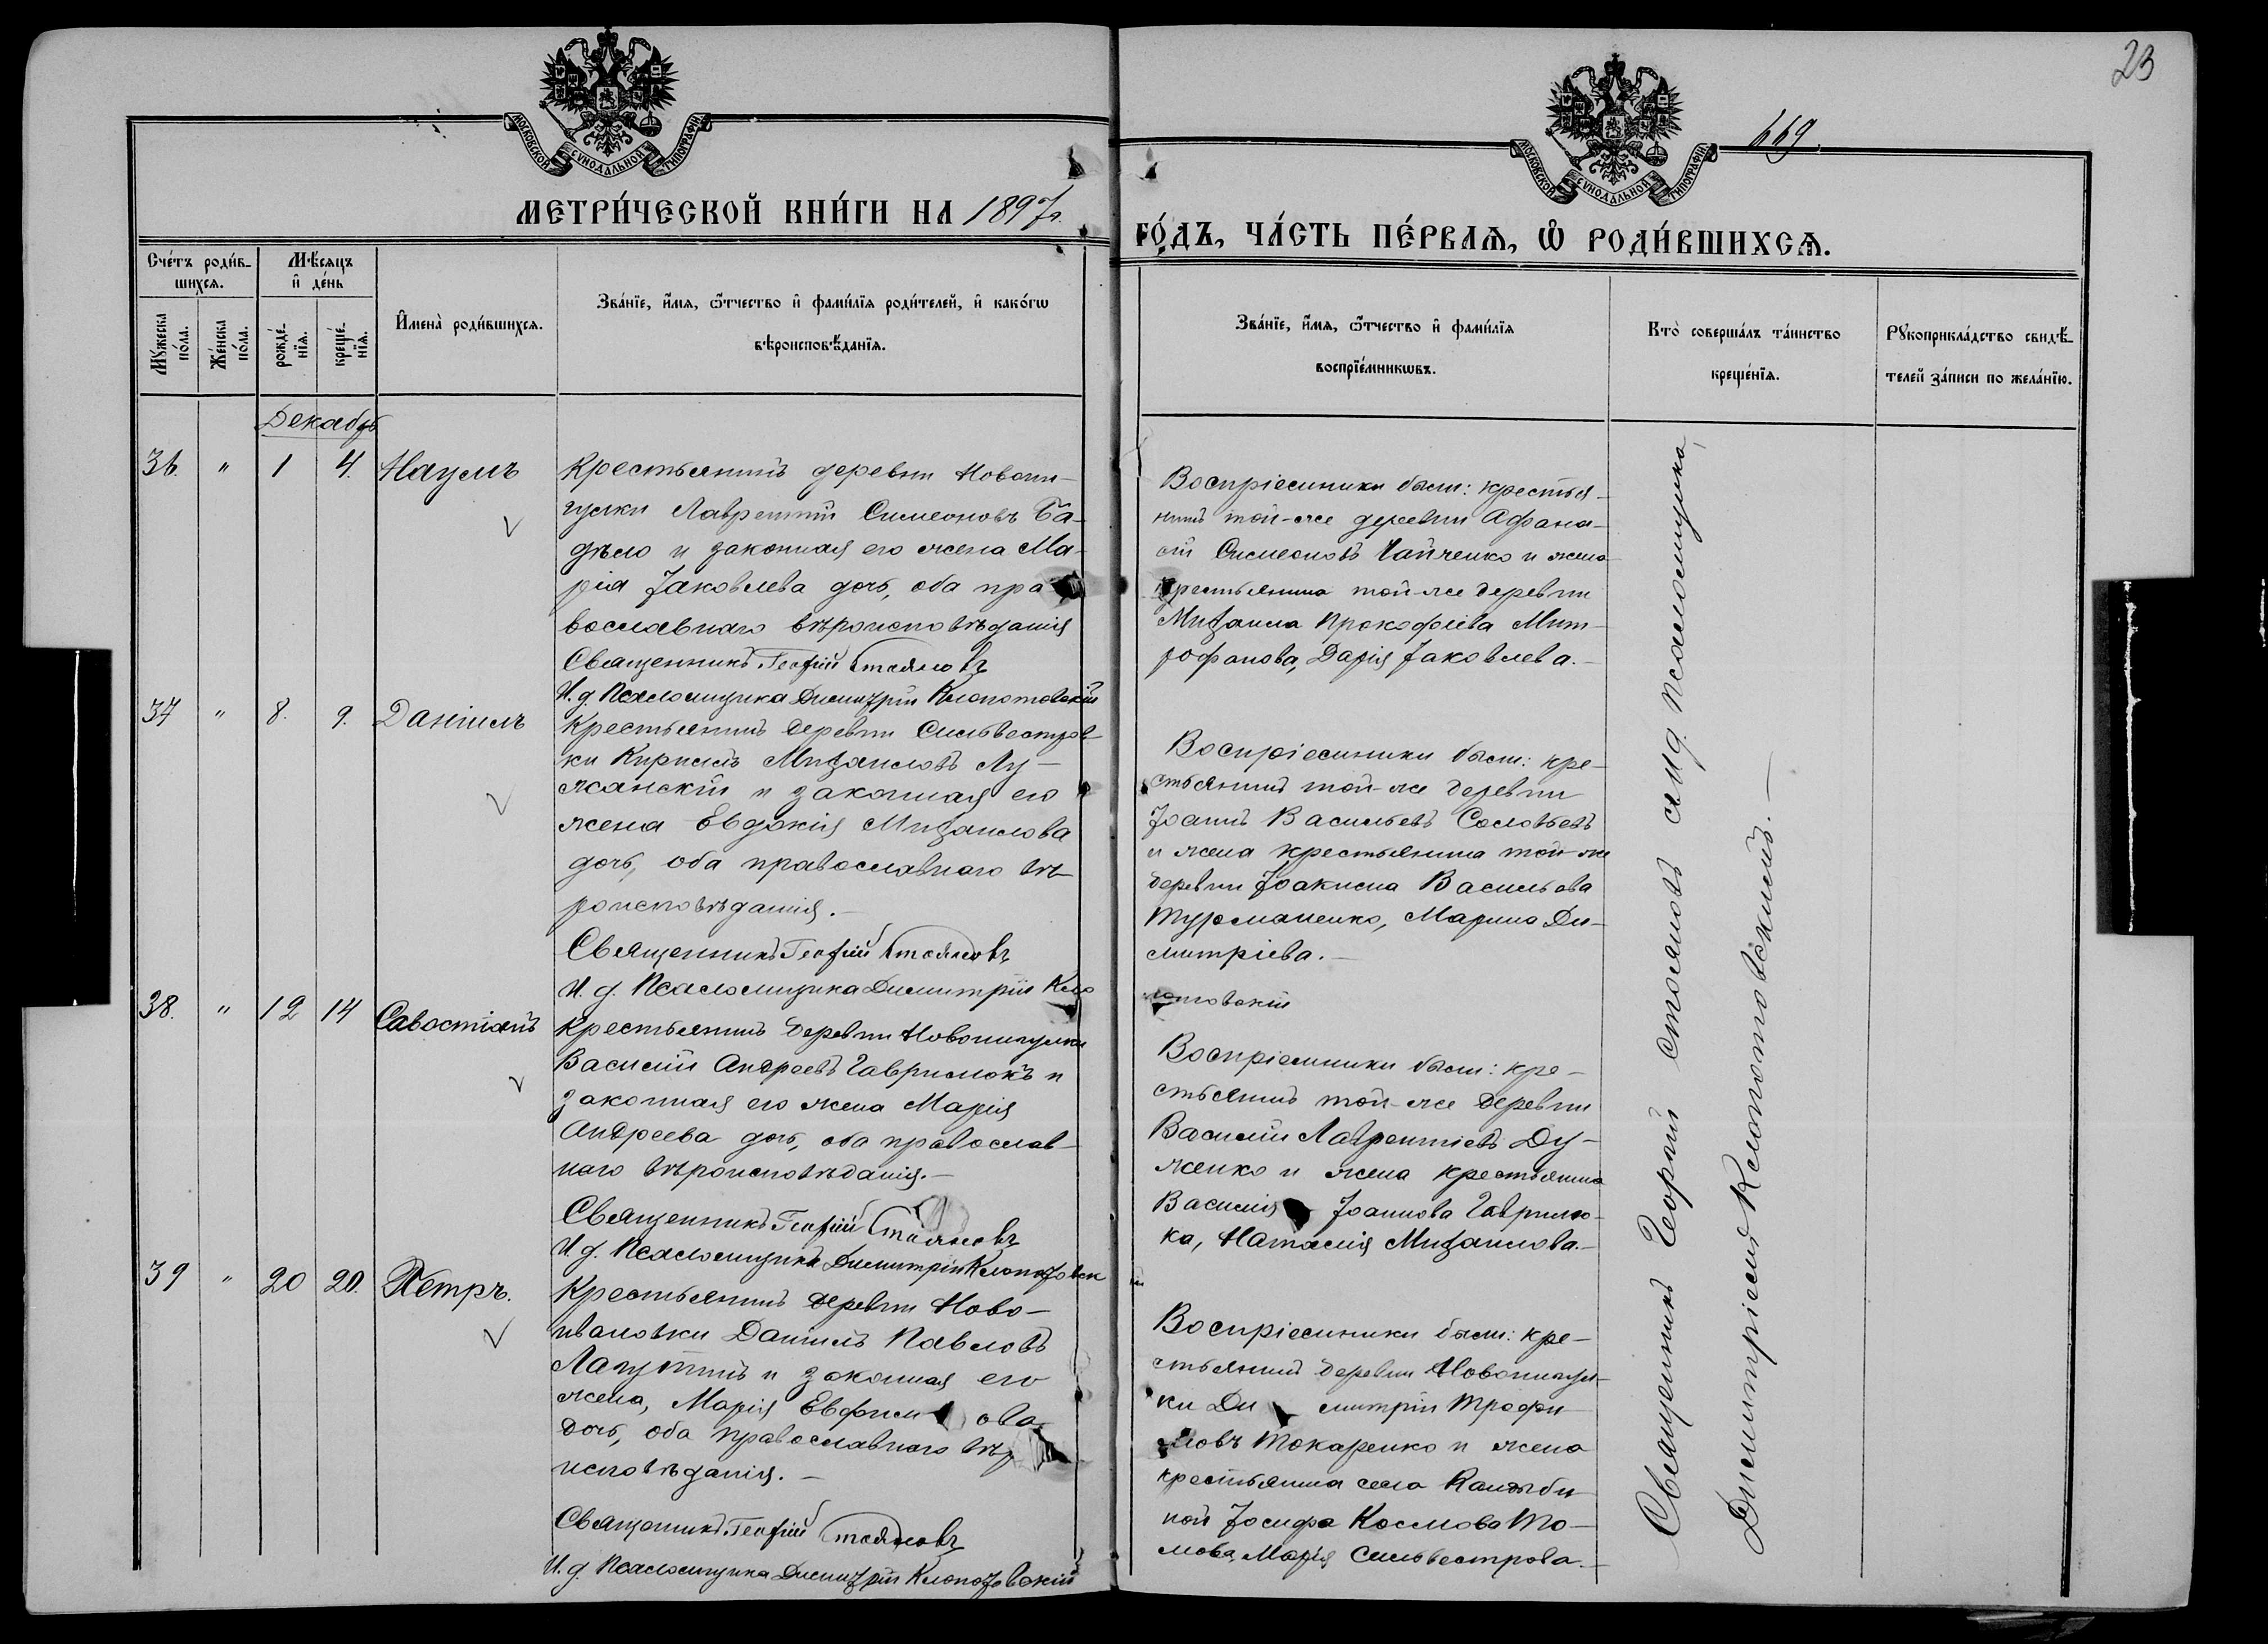 23
669
МОСКОВСКОЙ СУНОДАЛЬНОЙ ТИПОГРАФІИ
МОСКОВСКОЙ СУНОДАЛЬНОЙ ТИПОГРАФІИ
МЕТРИ́ЧЕСКОЙ КНИ́ГИ НА 1897 г.
ГО́ДЪ, ЧА́СТЬ ПЕ́РВАѦ, Ѡ РОДИ́ВШИХСѦ.
Сче́тъ роди́в-
шихсѧ.
Мꙋ́жеска по́ла.
Же́нска по́ла.
Мѣ́сѧцъ
и҆ де́нь
рожде́-
нїѧ.
креще́-
нїѧ.
И҆мена̀ роди́вшихсѧ.
Зва́нїе, и҆́мѧ, ѻ҆́тчество и҆ фами́лїѧ роди́телей, и҆ како́гѡ
вѣроисповѣ́данїѧ.
Зва́нїе, и҆́мѧ, ѻ҆́тчество и҆ фами́лїѧ
воспрїе́мникѡвъ.
Кто̀ соверша́лъ та́инство
креще́нїѧ.
Рꙋкоприкла́дство свидѣ́-
телей за́писи по жела́нїю.
Декабрь
36. " 1 4. Наумъ
Крестьянинъ деревни Новопи-
гулки Лаврентій Симеоновъ Ба-
дѣло и законная его жена Ма-
рія Іаковлева дочь, оба пра
вославнаго вѣроисповѣданія
Священникъ Георгій Стояновъ
И. д. Псаломщика Димитрій Клопотовскій
Воспріемники были: крестья-
нинъ той-же деревни Афана-
сій Симеоновъ Чайченко и жена
крестьянина той-же деревни
Михаила Прокофіева Мит-
рофанова, Дарія Іаковлева.-
37 " 8. 9. Даніилъ
Крестьянинъ деревни Сильвестров
ки Кириллъ Михаиловъ Лу-
жанскій и законная его
жена Евдокія Михаилова
дочь, оба православнаго вѣ-
роисповѣданія.-
Священникъ Георгій Стояновъ
И. д. Псаломщика Димитрій Кло
потовскій
Воспріемники были: кре-
стьянинъ той-же деревни
Іоаннъ Васильевъ Соловьевъ
и жена крестьянина той-же
деревни Іоакима Васильева
Турманенко, Марина Ди-
митріева.-
38. " 12 14 Савостіанъ
Крестьянинъ деревни Новопигулки
Василій Андреевъ Гаврилюкъ и
законная его жена Марія
Андреева дочь, оба православ-
наго вѣроисповѣданія.-
Священникъ Георгій Стояновъ
И. д. Псаломщика Димитрій Клопотовск
ій
Воспріемники были: кре-
стьянинъ той-же деревни
Василій Лаврентіевъ Ду-
женко и жена крестьянина
Василія Іоаннова Гаврилю-
ка, Наталія Михаилова.-
39 " 20 20. Петръ.
Крестьянинъ деревни Ново-
ивановки Даніилъ Павловъ
Лапутинъ и законная его
жена, Марія Евфим ова
дочь, оба православнаго вѣр
исповѣданія.-
Священникъ Георгій Стояновъ
И. д. Псаломщика Димитрій Клопотовскій
Воспріемники были: кре-
стьянинъ деревни Новопигул-
ки Ди митрій Трофи
мовъ Токаренко и жена
крестьянина села Кандыби
ной Іосифа Космова То-
мова, Марія Сильвестрова.-
Священникъ Георгій Стояновъ съ И. д. Псаломщика
Димитріемъ Клопотовскимъ.-